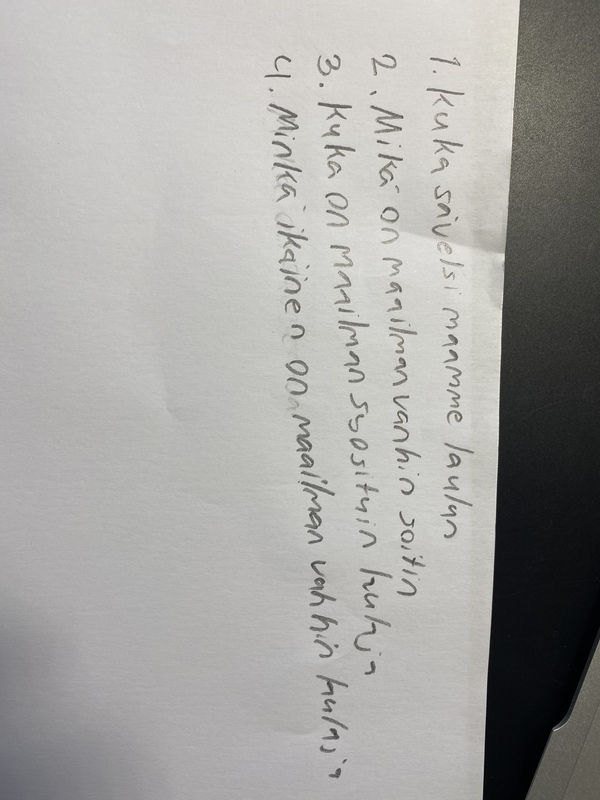 1. Kuka sävelsi maamme laulun
2. Mikä on maailman vanhin soitin
3. Kuka on maailman suosituin laulaja
4. Minkä ikäinen on maailman vanhin laulaja